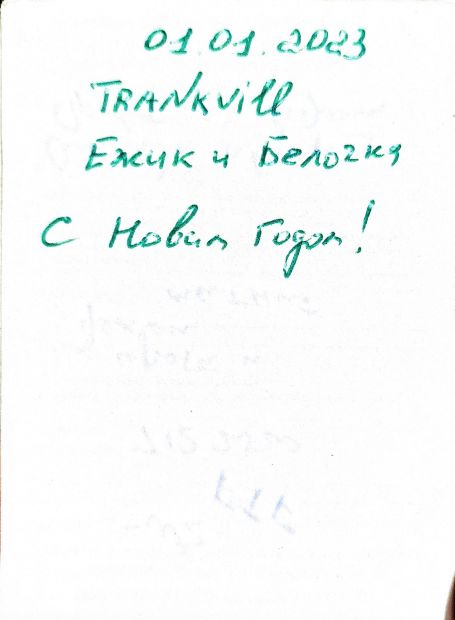 01.01.2023
TRANKVill
Ежик и Белочка
С Новым Годом!